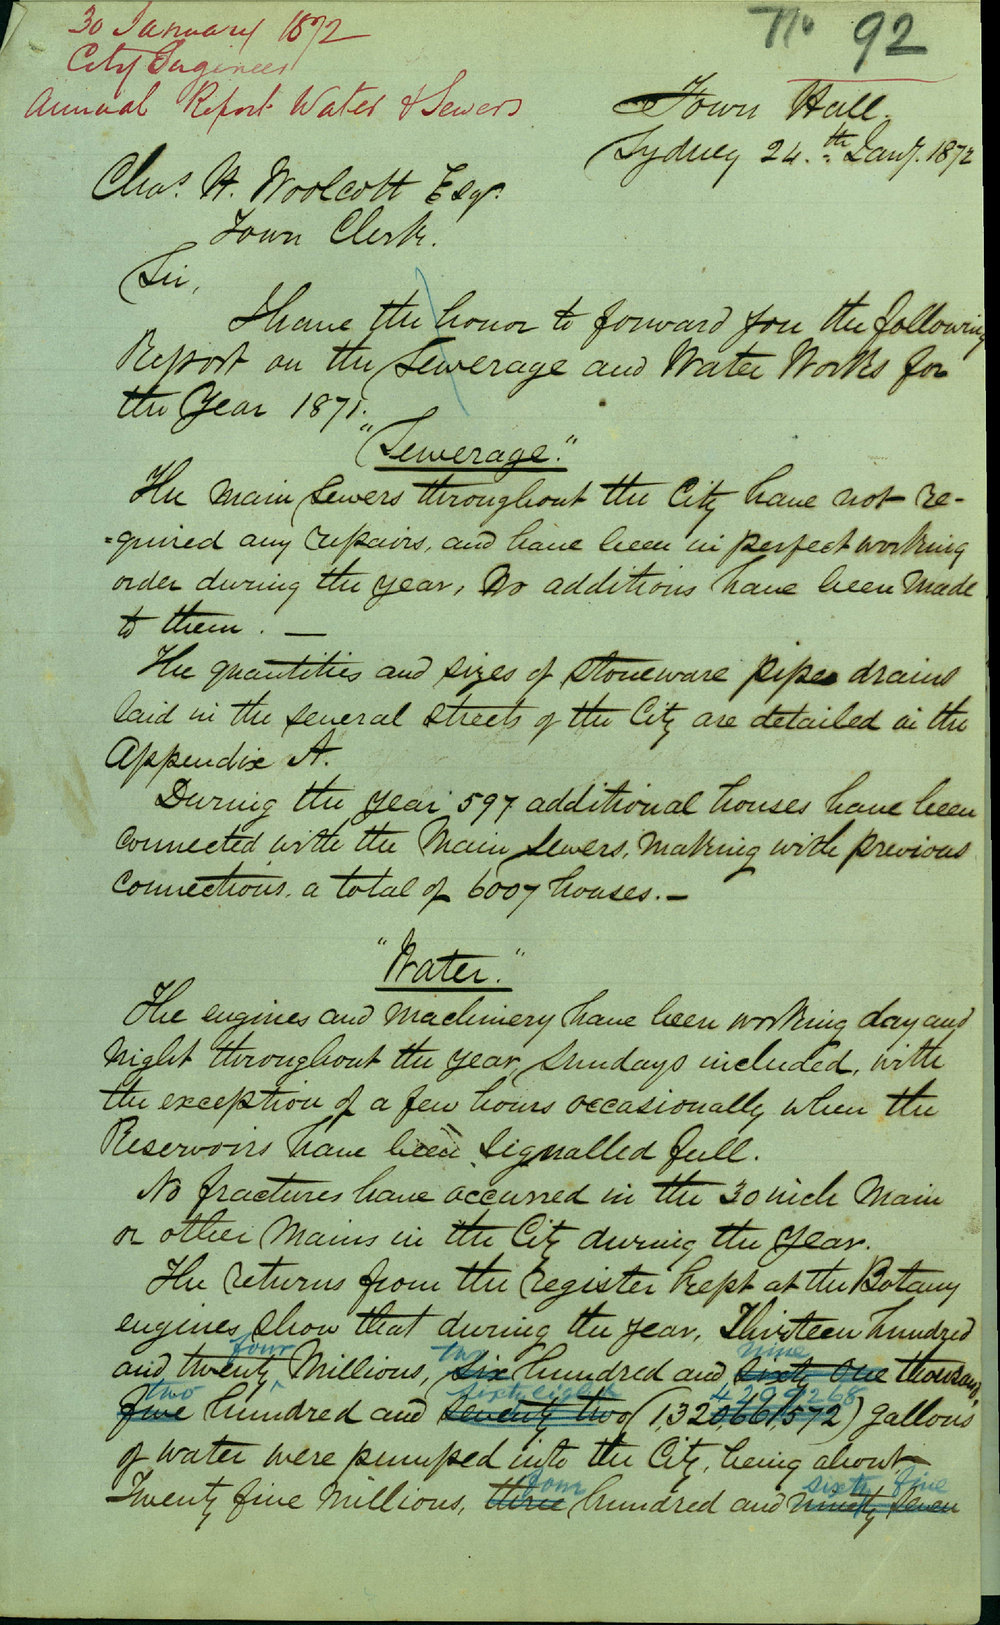 30 January 1872
City Engineer
Annual Report Water & Sewers
No 92
Town Hall.
Sydney 24.th Jany. 1872
Chas. H. Woolcott Esqr.
Town Clerk.
Sir,
I have the honor to forward you the following
Report on the Sewerage and Water Works for
the Year 1871.
"Sewerage."
The Main Sewers throughout the City have not re-
=quired any repairs, and have been in perfect working
order during the year, No additions have been made
to them. —
The quantities and sizes of stoneware pipe drains
laid in the several streets of the City are detailed in the
Appendix A.
During the year 597 additional houses have been
connected with the Main Sewers, making with previous
connections, a total of 6007 houses. —
"Water."
The engines and Machinery have been working day and
Night throughout the year, Sundays included, with
the exception of a few hours occasionally when the
Reservoirs have been signalled full.
No fractures have occurred in the 30 inch Main
or other Mains in the City during the Year.
The returns from the register kept at the Botany
engines show that during the year, Thirteen hundred
four two nine
and twenty Millions, six hundred and sixty one thousand,
two sixty eight 4209268
five hundred and seventy two (1,320,661,572) gallons
of water were pumped into the City, being about
four sixty five
Twenty five Millions, three hundred and ninety seven